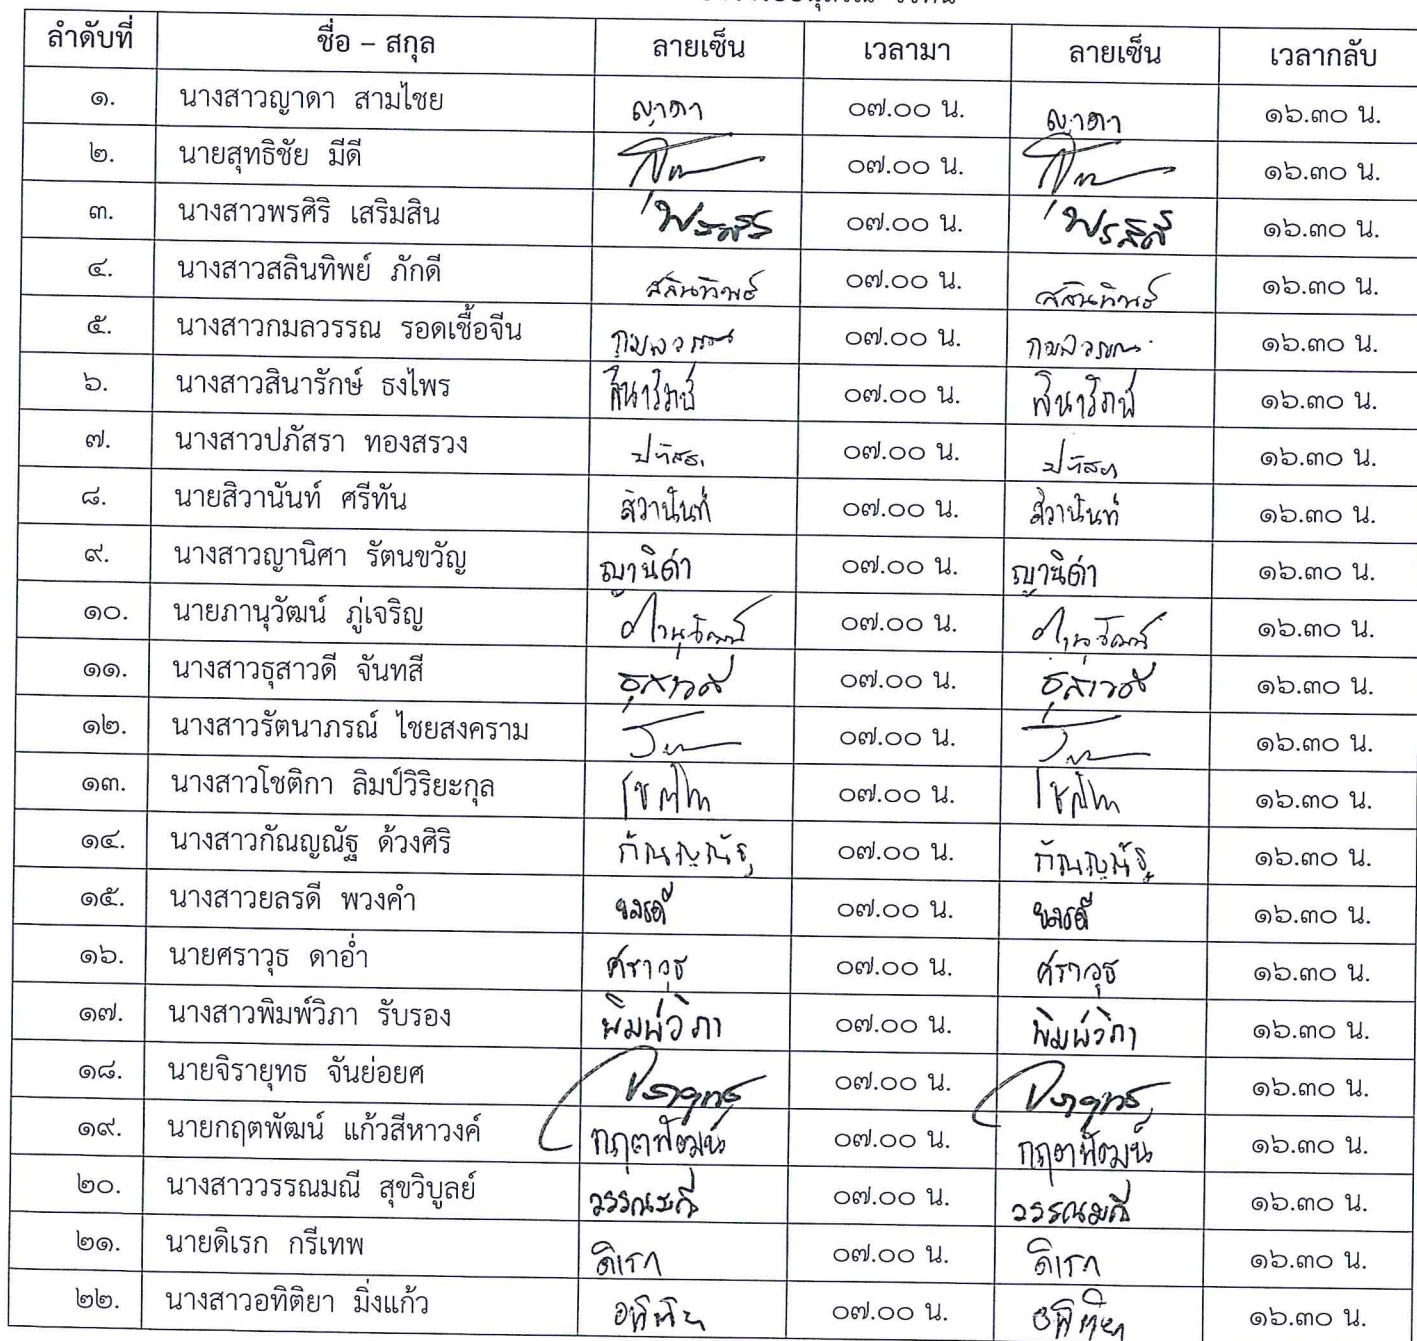 ลำดับที่ ชื่อ – สกุล ลายเซ็น เวลามา ลายเซ็น เวลากลับ
๑. นางสาวญาดา สามไชย ญาดา ๐๗.๐๐ น. ญาดา ๑๖.๓๐ น.
๒. นายสุทธิชัย มีดี ๐๗.๐๐ น. ๑๖.๓๐ น.
๓. นางสาวพรศิริ เสริมสิน พรศิริ ๐๗.๐๐ น. พรศิริ ๑๖.๓๐ น.
๔. นางสาวสลินทิพย์ ภักดี สลินทิพย์ ๐๗.๐๐ น. สลินทิพย์ ๑๖.๓๐ น.
๕. นางสาวกมลวรรณ รอดเชื้อจีน กมลวรรณ ๐๗.๐๐ น. กมลวรรณ ๑๖.๓๐ น.
๖. นางสาวสินารักษ์ ธงไพร สินารักษ์ ๐๗.๐๐ น. สินารักษ์ ๑๖.๓๐ น.
๗. นางสาวปภัสรา ทองสรวง ปภัสรา ๐๗.๐๐ น. ปภัสรา ๑๖.๓๐ น.
๘. นายสิวานันท์ ศรีทัน สิวานันท์ ๐๗.๐๐ น. สิวานันท์ ๑๖.๓๐ น.
๙. นางสาวญานิศา รัตนขวัญ ญานิศา ๐๗.๐๐ น. ญานิศา ๑๖.๓๐ น.
๑๐. นายภานุวัฒน์ ภู่เจริญ ภานุวัฒน์ ๐๗.๐๐ น. ภานุวัฒน์ ๑๖.๓๐ น.
๑๑. นางสาวธุสาวดี จันทสี ธุสาวดี ๐๗.๐๐ น. ธุสาวดี ๑๖.๓๐ น.
๑๒. นางสาวรัตนาภรณ์ ไชยสงคราม ๐๗.๐๐ น. ๑๖.๓๐ น.
๑๓. นางสาวโชติกา ลิมป์วิริยะกุล โชติกา ๐๗.๐๐ น. โชติกา ๑๖.๓๐ น.
๑๔. นางสาวกัณญณัฐ ด้วงศิริ กัณญณัฐ ๐๗.๐๐ น. กัณญณัฐ ๑๖.๓๐ น.
๑๕. นางสาวยลรดี พวงคำ ยลรดี ๐๗.๐๐ น. ยลรดี ๑๖.๓๐ น.
๑๖. นายศราวุธ ดาอ่ำ ศราวุธ ๐๗.๐๐ น. ศราวุธ ๑๖.๓๐ น.
๑๗. นางสาวพิมพ์วิภา รับรอง พิมพ์วิภา ๐๗.๐๐ น. พิมพ์วิภา ๑๖.๓๐ น.
๑๘. นายจิรายุทธ จันย่อยศ จิรายุทธ ๐๗.๐๐ น. จิรายุทธ ๑๖.๓๐ น.
๑๙. นายกฤตพัฒน์ แก้วสีหาวงค์ กฤตพัฒน์ ๐๗.๐๐ น. กฤตพัฒน์ ๑๖.๓๐ น.
๒๐. นางสาววรรณมณี สุขวิบูลย์ วรรณมณี ๐๗.๐๐ น. วรรณมณี ๑๖.๓๐ น.
๒๑. นายดิเรก กรีเทพ ดิเรก ๐๗.๐๐ น. ดิเรก ๑๖.๓๐ น.
๒๒. นางสาวอทิติยา มิ่งแก้ว อทิติยา ๐๗.๐๐ น. อทิติยา ๑๖.๓๐ น.